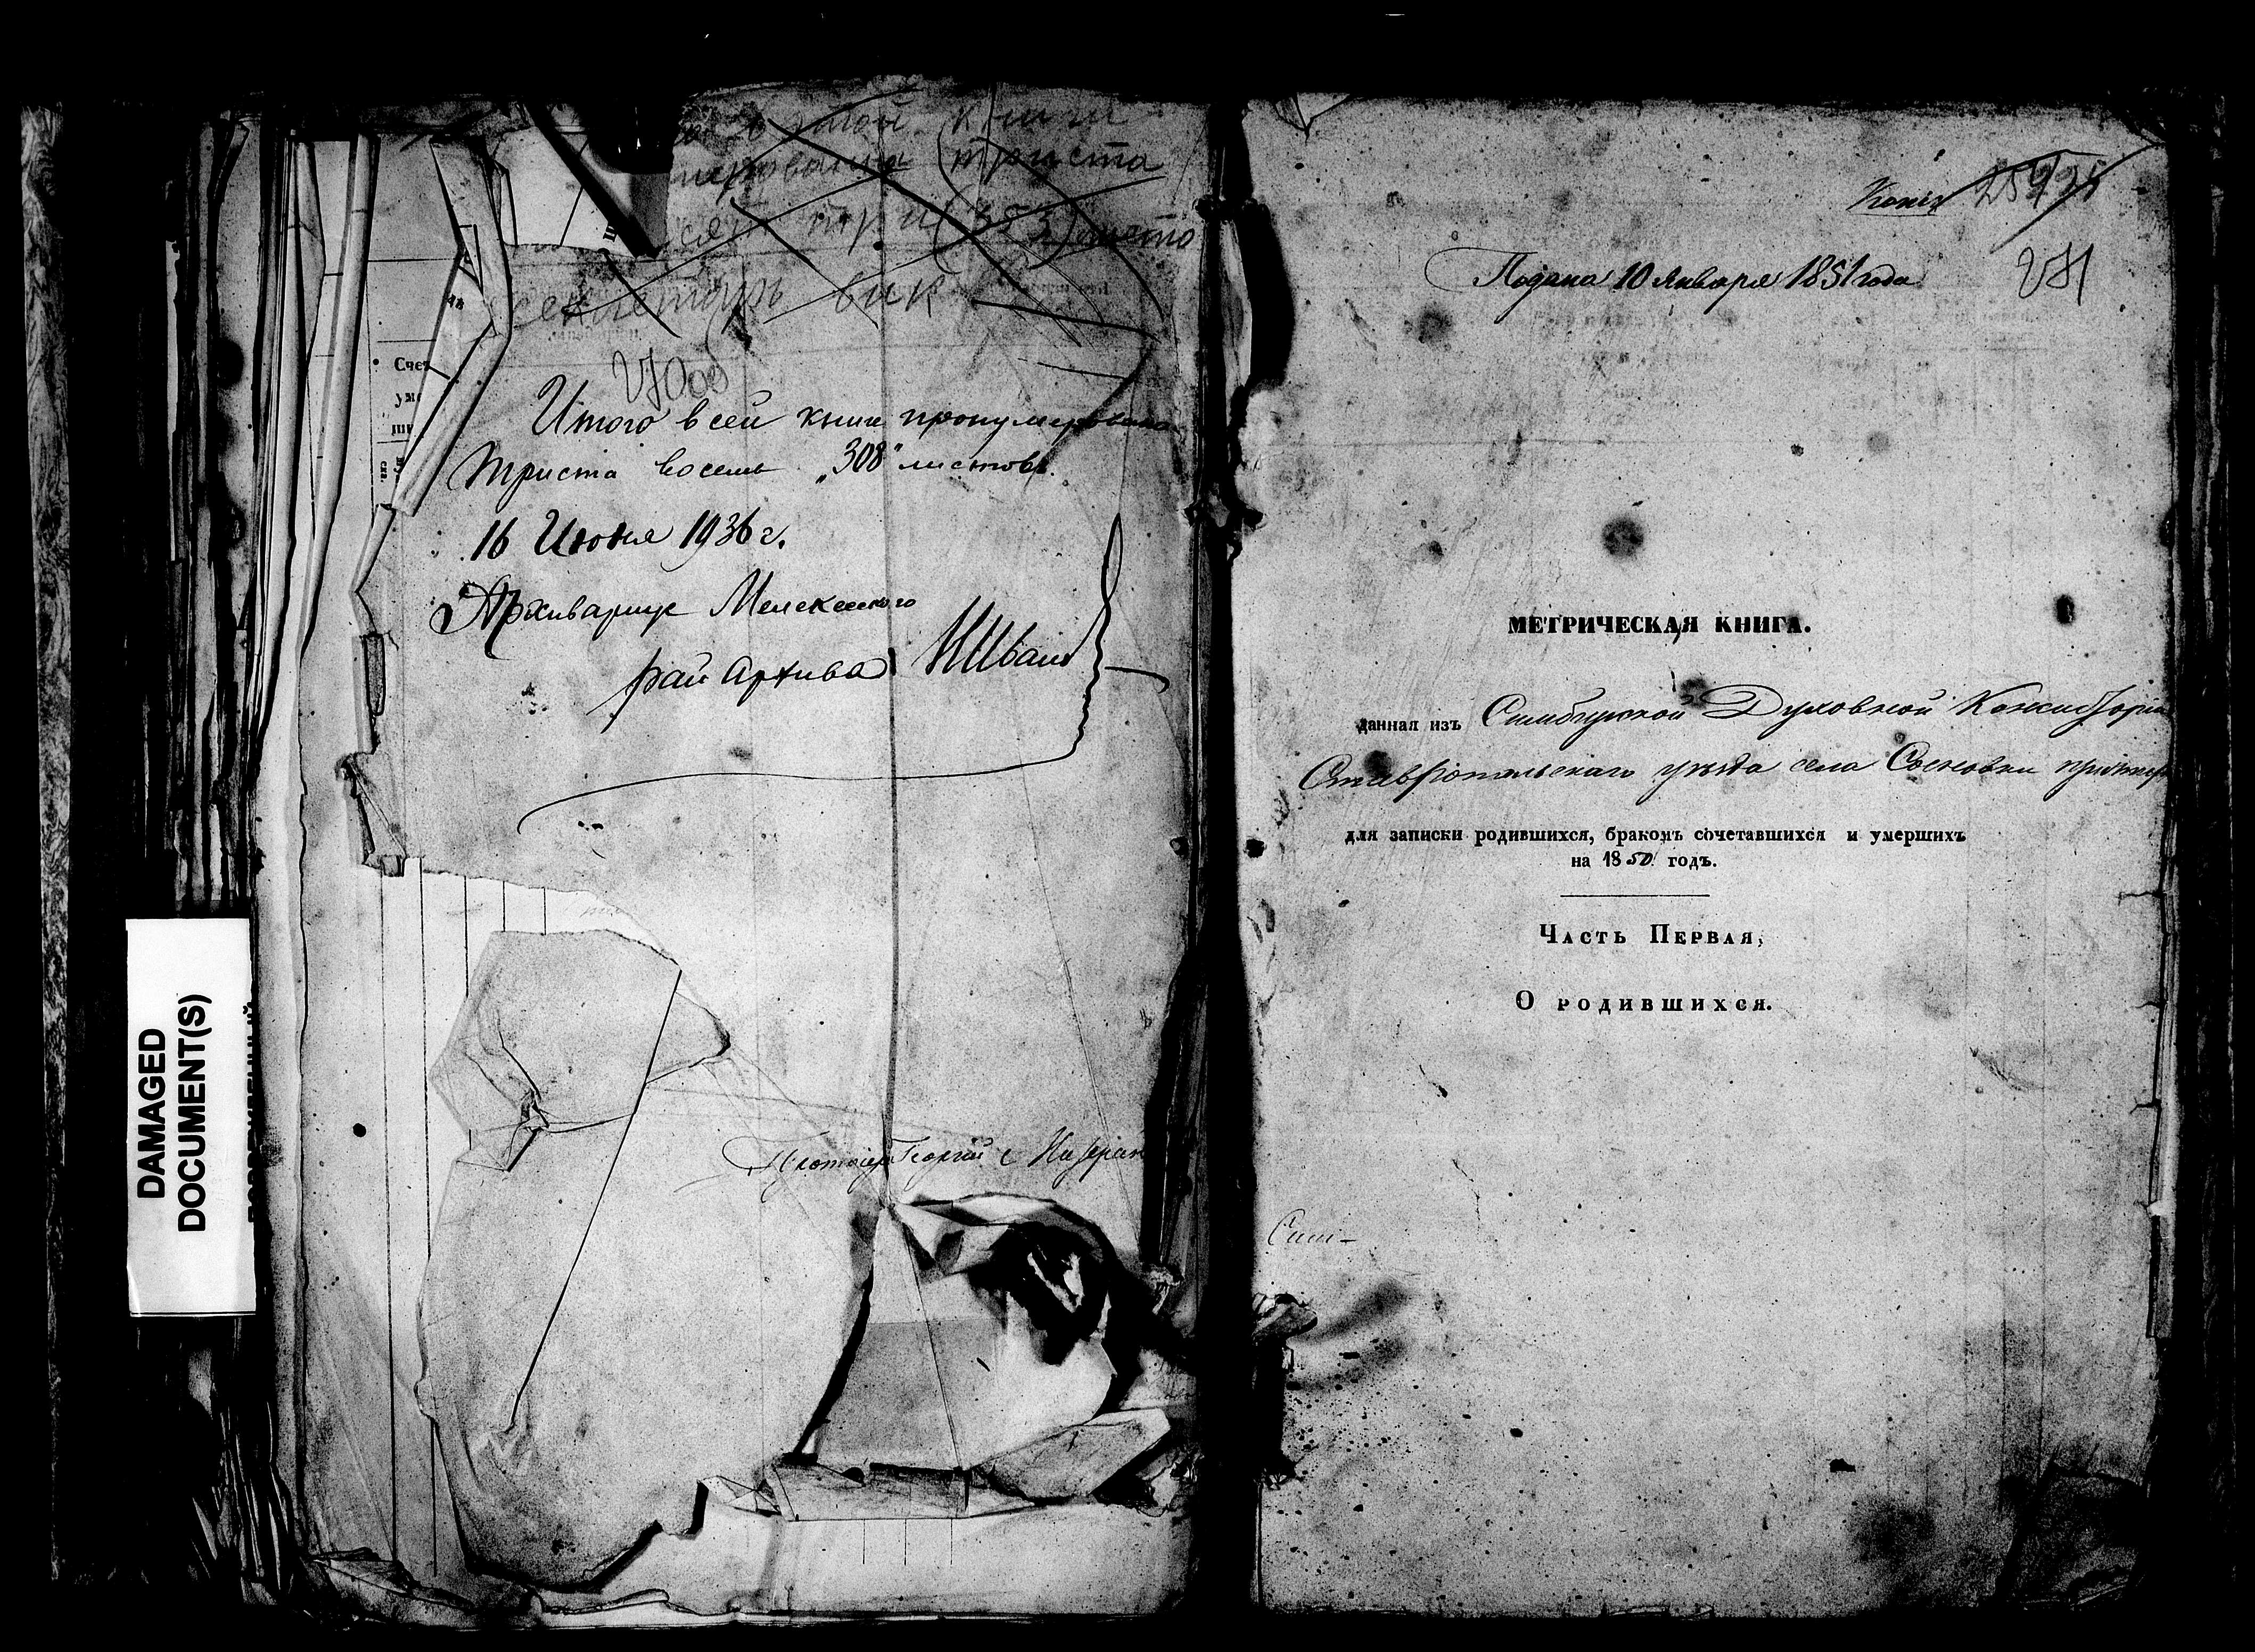 этой книги
триста
три (353) листо
секретарь вик
Итого всей книге пронумеровано
триста восемь „308" листовъ.
16 Июня 1936 г.
Архивариус Мелекесского
рай Архива
Протоіер Георгій
Счет
DAMAGED
DOCUMENT(S)
Копія
Подана 10 Января 1851 года
МЕТРИЧЕСКАЯ КНИГА.
данная изъ Симбирской Духовной Консисторіи
Ставропольскаго уѣзда села Сосновки
для записки родившихся, бракомъ сочетавшихся и умершихъ
на 1850 годъ.
Часть Первая,
О родившихся.